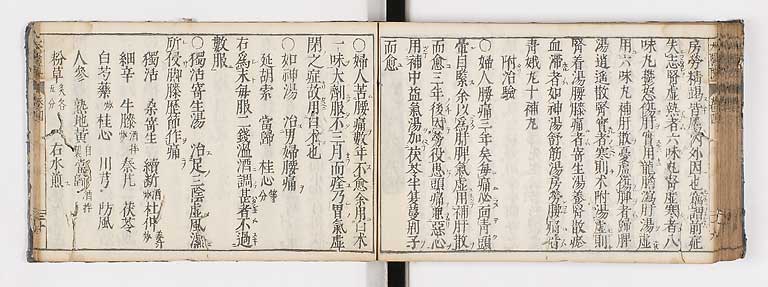 房勞精竭皆爲內外因也竊謂前症
失志腎虛熱者六味丸腎虛寒者八
味丸鬱怒傷肝實用龍膽瀉肝湯虛
用六味丸補肝散憂慮傷脾者歸脾
湯逍遙散腎實者寒則朮附湯虛則
腎着湯腰膝痛者寄生湯養腎散瘀
血滯者如神湯舒筋湯房勞腰痛者
青娥丸十補丸
附治驗
○婦人腰痛三年矣每痛心面青頭
暈目緊余以爲肝脾氣虛用補肝散
而愈三年後因勞役患頭痛兼惡心
用補中益氣湯加茯苓半夏蔓荆子
而愈
○婦人苦腰痛數年不愈余用白朮
一味大劑服不三月而痊乃胃氣虛
閉之症故用白朮也
○如神湯 治男婦腰痛
延胡索 當歸 桂心 等分
右爲末每服二錢溫酒調甚者不過
數服
○獨活寄生湯 治足三陰虛風濕
所侵脚膝歷節作痛
獨活 桑寄生 續斷 杜仲
細辛 牛膝 秦艽 茯苓
白芍藥 桂心 川芎 防風
人參 熟地黄 當歸
粉草 右水煎